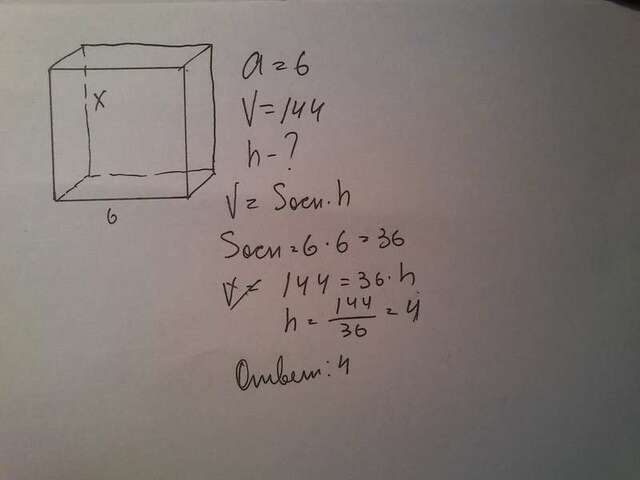 x
6
a = 6
V = 144
h - ?
V = Sосн · h
Sосн = 6 · 6 = 36
V = 144 = 36 · h
h = 144/36 = 4
Ответ: 4